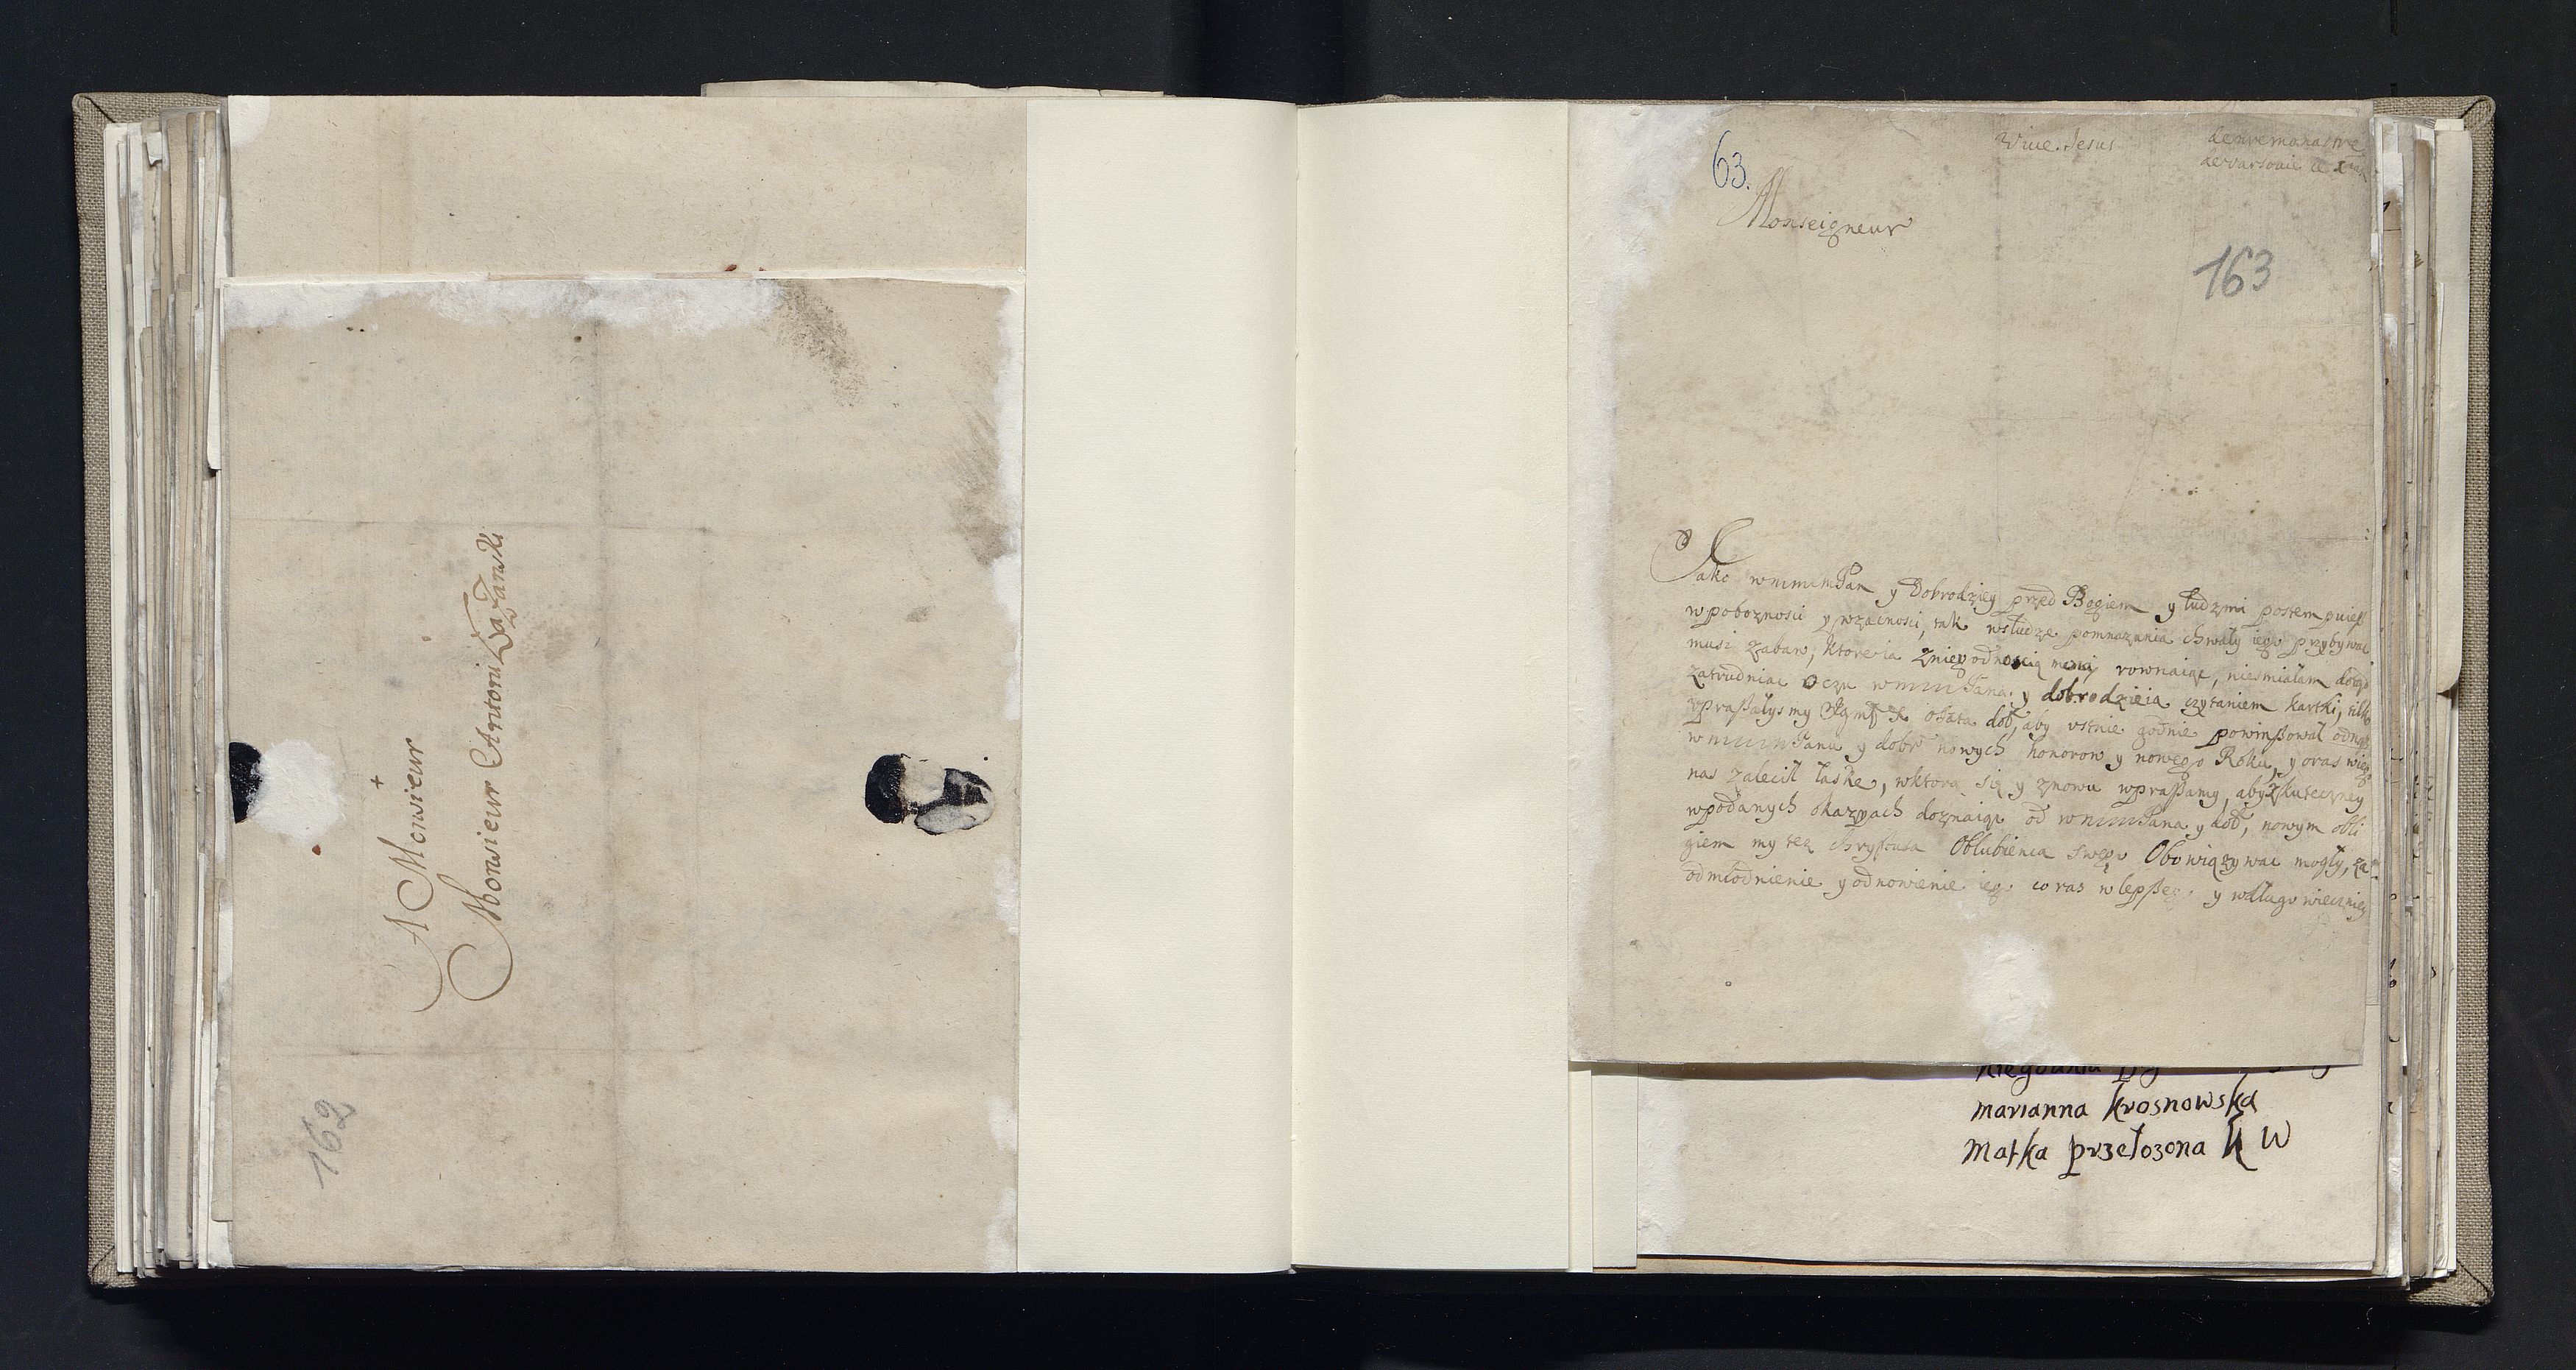 A Monsieur
Monsieur Antoni
162
63.
Vive Jesus
de nre monastre
de varsovie ce
Monseigneur
163
Jako wmmmPan y Dobrodziey przed Bogiem y ludzmi postempuiesz
w poboznosci y wzacnosci, tak wsłudze pomnazania chwały iego przybywac
musi zabaw, ktore ia zniegodnoscią moią rownaiąc, niesmiałam dotąd
zatrudniac oczu wmmmPana y dobrodzieia czytaniem kartki, tilko
vpraszałysmy aby vstnie godnie powinszował od nas
wmmmPanu y dobr nowych honorow y nowego Roku, y oras wiego
nas zalecił łaske, wktorą się y znowu wpraszamy, aby skuteczney
wpodanych okazyach doznaiąc od wmmmPana y dob, nowym obli
giem my tez chrystusa Oblubienca swego Obowiązywac mogły, za
odmłodnienie y odnowienie iego co ras w lepszego y wdługo wieczniey
marianna krosnowska
Matka przełozona K W